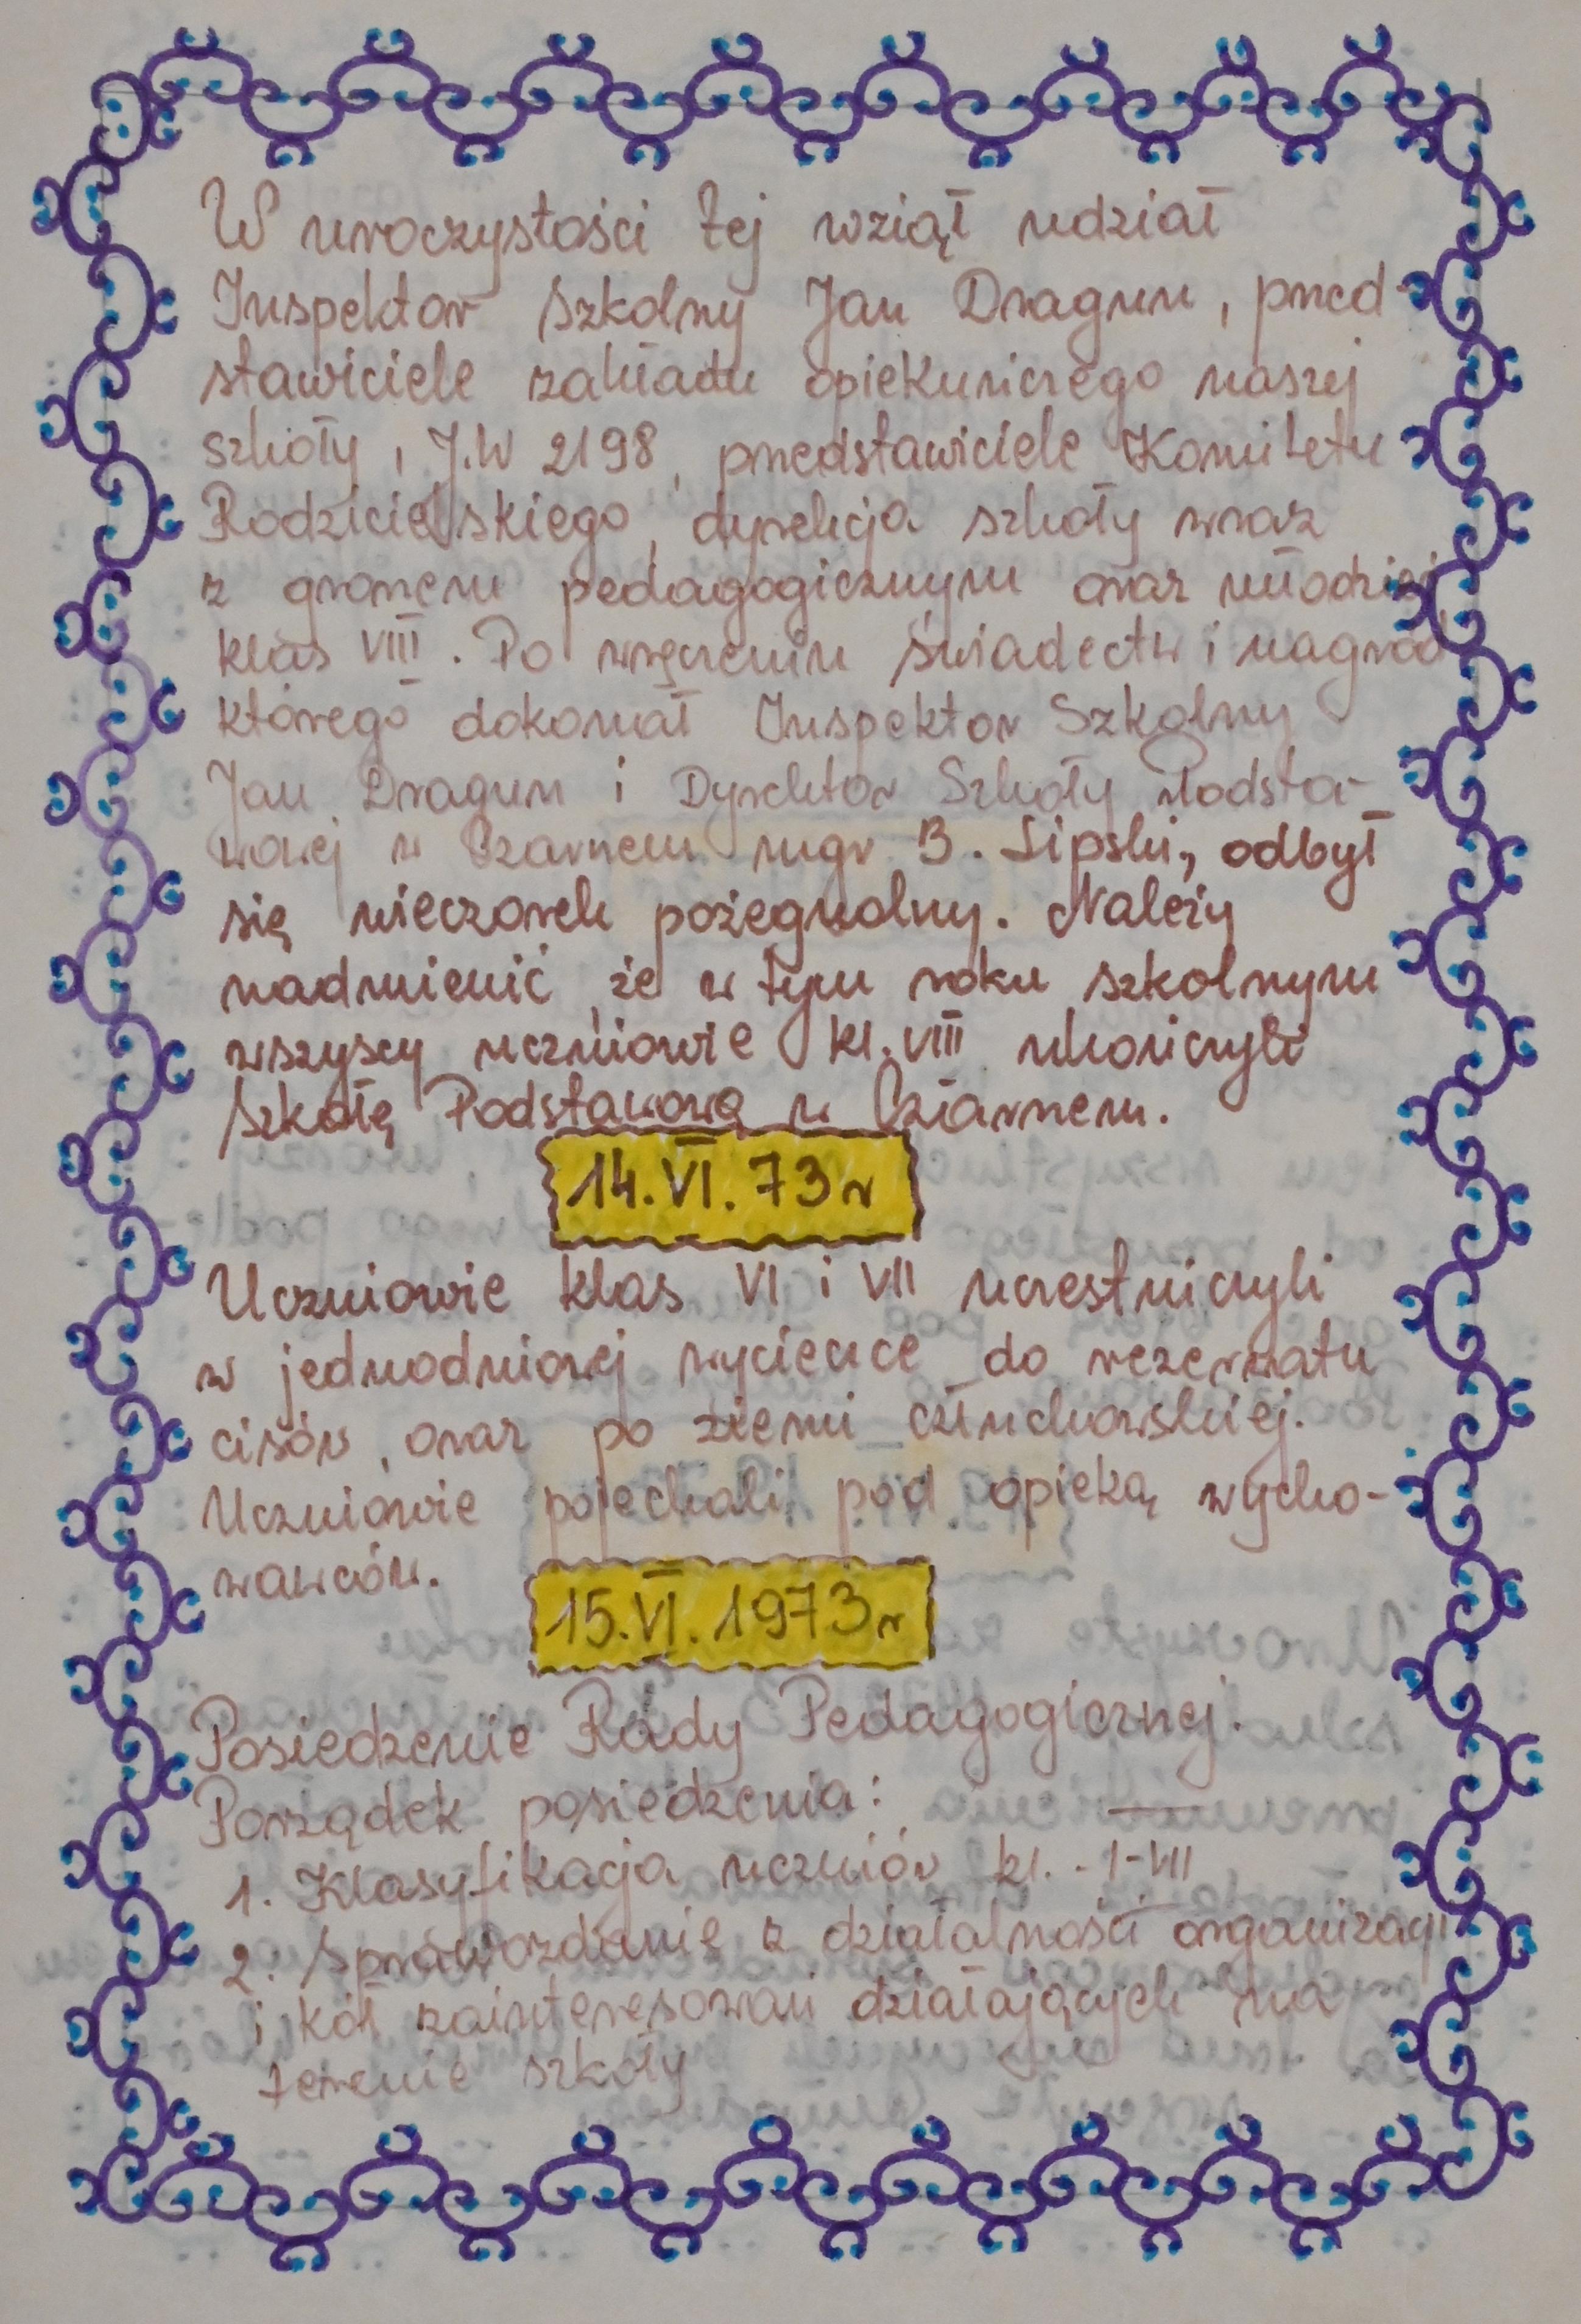 W uroczystości tej wziął udział
Inspektor Szkolny Jan Dragun, przed-
stawiciele zakładu opiekuńczego naszej
szkoły, J.W 2198, przedstawiciele Komitetu
Rodzicielskiego, dyrekcja szkoły wraz
z gronem pedagogicznym oraz młodzież
klas VIII. Po wręczeniu świadectw i nagród
którego dokonał Inspektor Szkolny
Jan Dragun i Dyrektor Szkoły Podsta-
wowej w Czarnem mgr B. Lipski, odbył
się wieczorek pożegnalny. Należy
nadmienić, że w tym roku szkolnym
wszyscy uczniowie kl. VIII ukończyli
Szkołę Podstawową w Czarnem.
14.VI.73r
Uczniowie klas VI i VII uczestniczyli
w jednodniowej wycieczce do rezerwatu
cisów, oraz po ziemi człuchowskiej.
Uczniowie pojechali pod opieką wycho-
wawców.
15.VI.1973r
Posiedzenie Rady Pedagogicznej.
Porządek posiedzenia:
1. Klasyfikacja uczniów kl. - I-VII
2. Sprawozdanie z działalności organizacji
i kół zainteresowań działających na
terenie szkoły